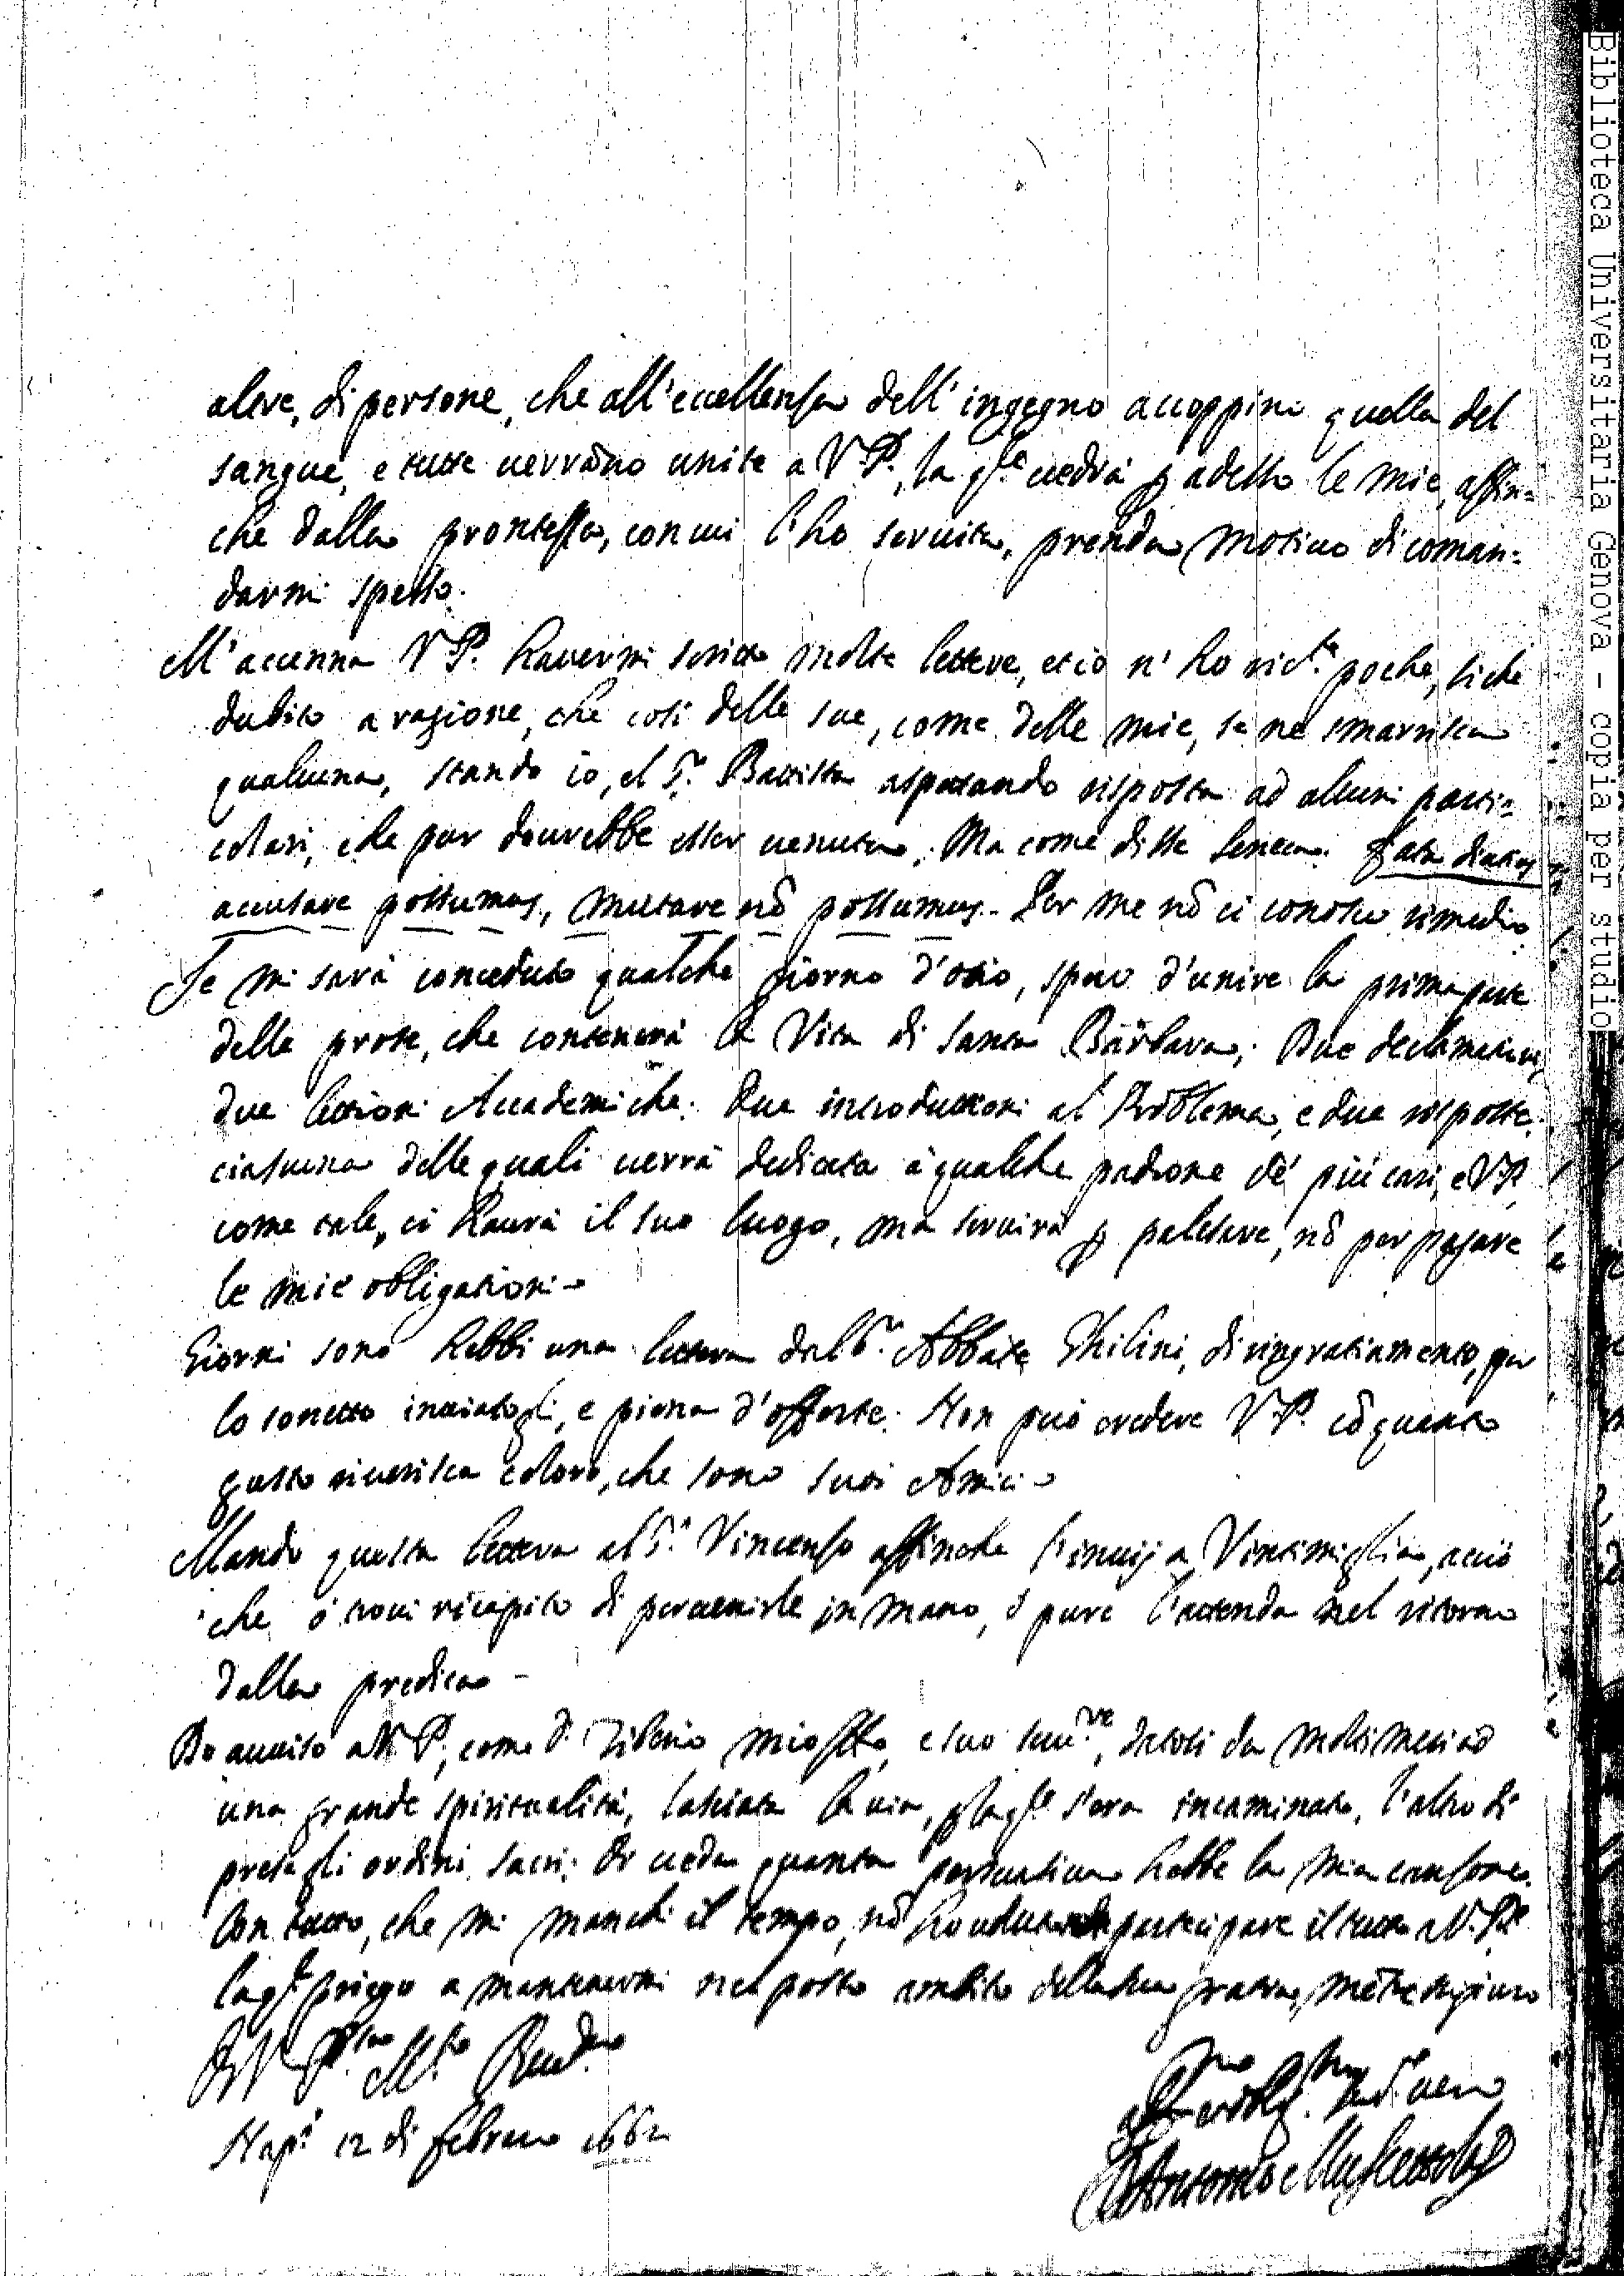 altre, di persone, che all'eccellenza dell'ingegno accoppino quella del
sangue, e tutte verrãno unite a V. P., la qle uedrà p adesso le mie, affin=
che dalla prontezza, con cui l'ho seruita, prenda motiuo di coman=
darmi spesso.
M'accenna V. P. hauermi scritto molte lettere, et io n'ho riceute poche, siche
dubito a ragione, che così delle sue, come delle mie, se ne smarrisca
qualcuna, stando io, e'l Sr. Battista aspettando risposta ad alcuni parti=
colari, che pur dourebbe esser uenuta; Ma come disse Seneca. Fata
accusare possumus, mutare nõ possumus. Per me nõ ci conosco rimedio.
Se mi sarà conceduto qualche giorno d'otio, spero d'unire la prima parte
delle prose, che contenerà la Vita di Santa Barbara; Due declamationi
due lettioni Accademiche. Due introduttioni al Problema, e due risposte.
ciascuna delle quali uerrà dedicata à qualche padrone de' più cari, e V. P.
come tale, ci haurà il suo luogo, ma seruirà p palesare, nõ per pagare
le mie obligationi.
Giorni sono hebbi una lettera dal Sr. Abbate Ghilini, di ringratiamento, per
lo sonetto inuiatogli, e piena d'offerte. Non può credere V. P. cõ quanto
gusto riuerisca coloro, che sono suoi Amici.
Mando questa lettera al Sr. Vincenzo affinche l'inuij a Vintimiglia, acciò
che ò troui ricapito di peruenirle in mano, ò pure l'attenda nel ritorno
dalla predica.
Do auuiso a V. P., come D. Tiberio mio, e suo, datosi da molti mesi ad
una grande spiritualità, lasciata la uia, p la qle s'era incaminato, l'altro dì
prese gli ordini sacri. Or ueda quanta persuasiua hebbe la mia canzone.
Con tutto, che mi manchi il tempo, nõ ho partecipare il tutto a V. P.
la qle priego a mantenermi nel posto ambito della sua gratia,
Di V. P. M. Reud.
Nap. 12 di Febraro 1662
Antonio Muscettola